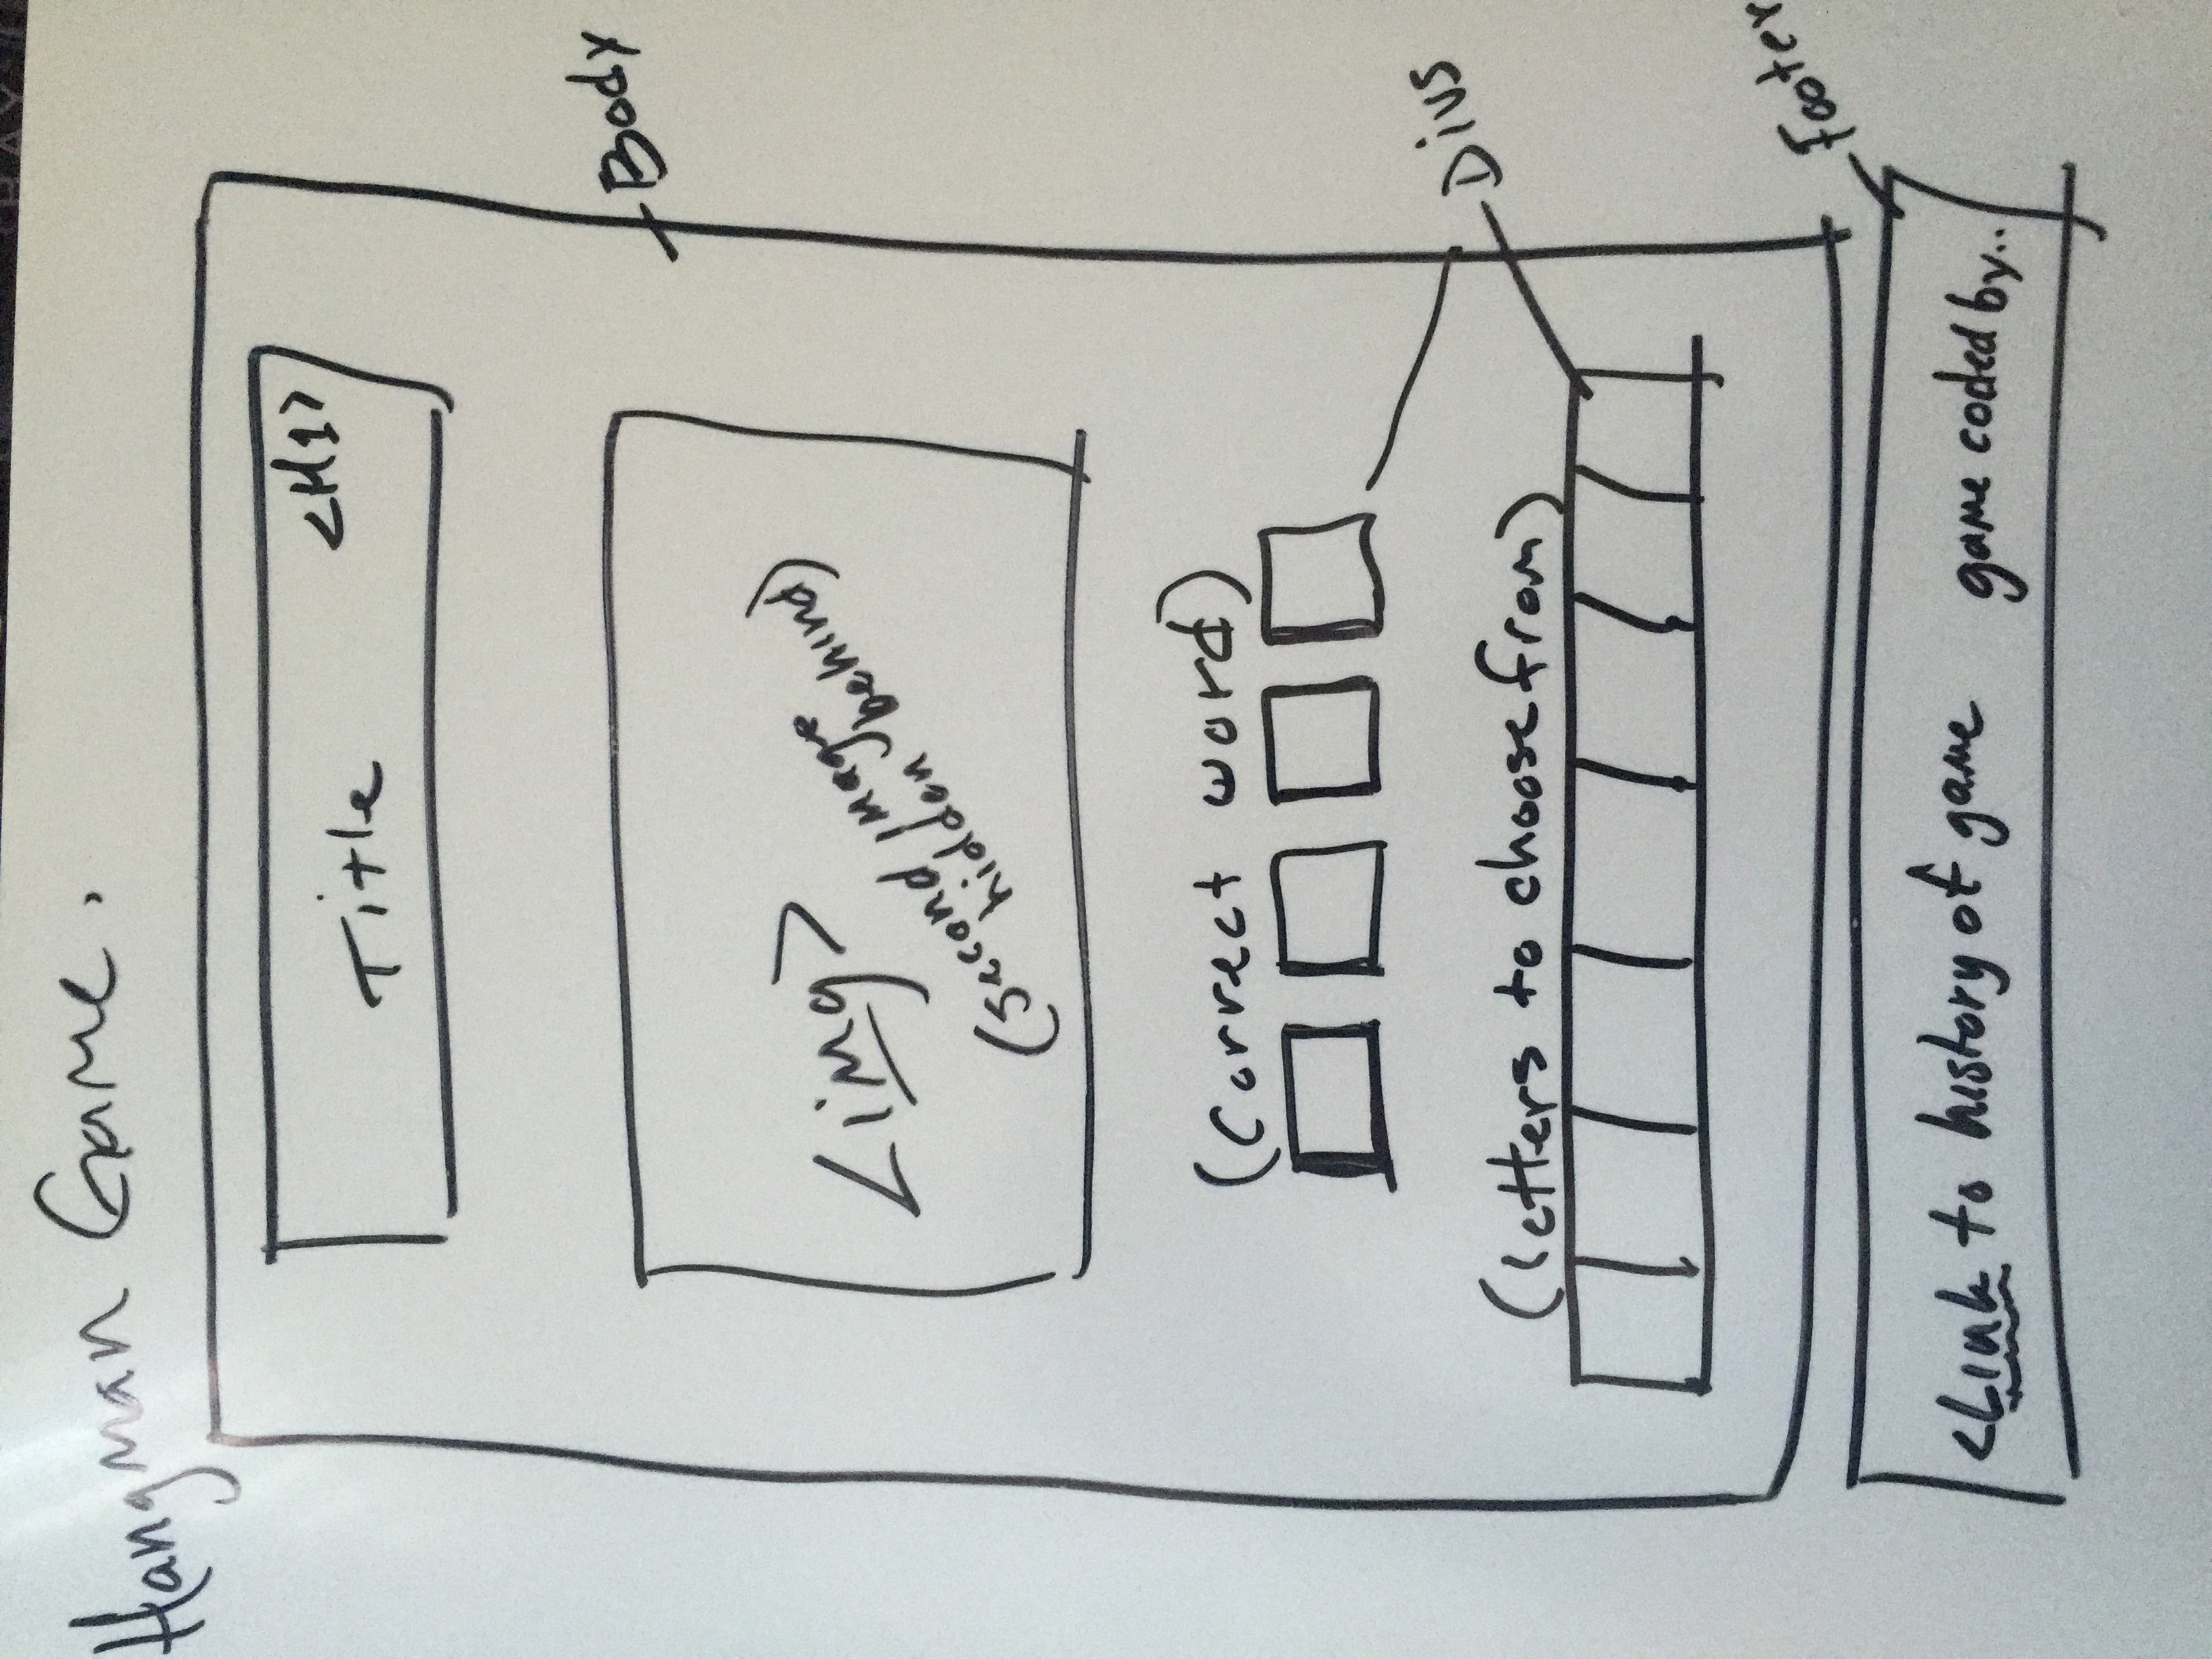 Hangman Game.
Title <H1>
Body
<img>
(second image
hidden behind)
(Correct word)
Divs
(letters to choose from)
Footer
<Link to history of game game coded by..